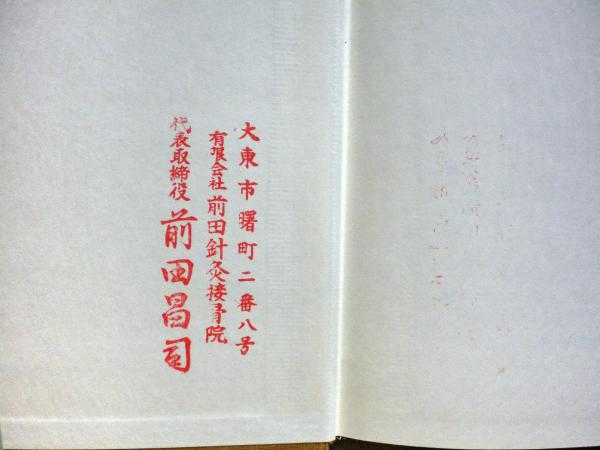 大東市曙町二番八号
有限会社 前田針灸接骨院
代表取締役 前田昌司